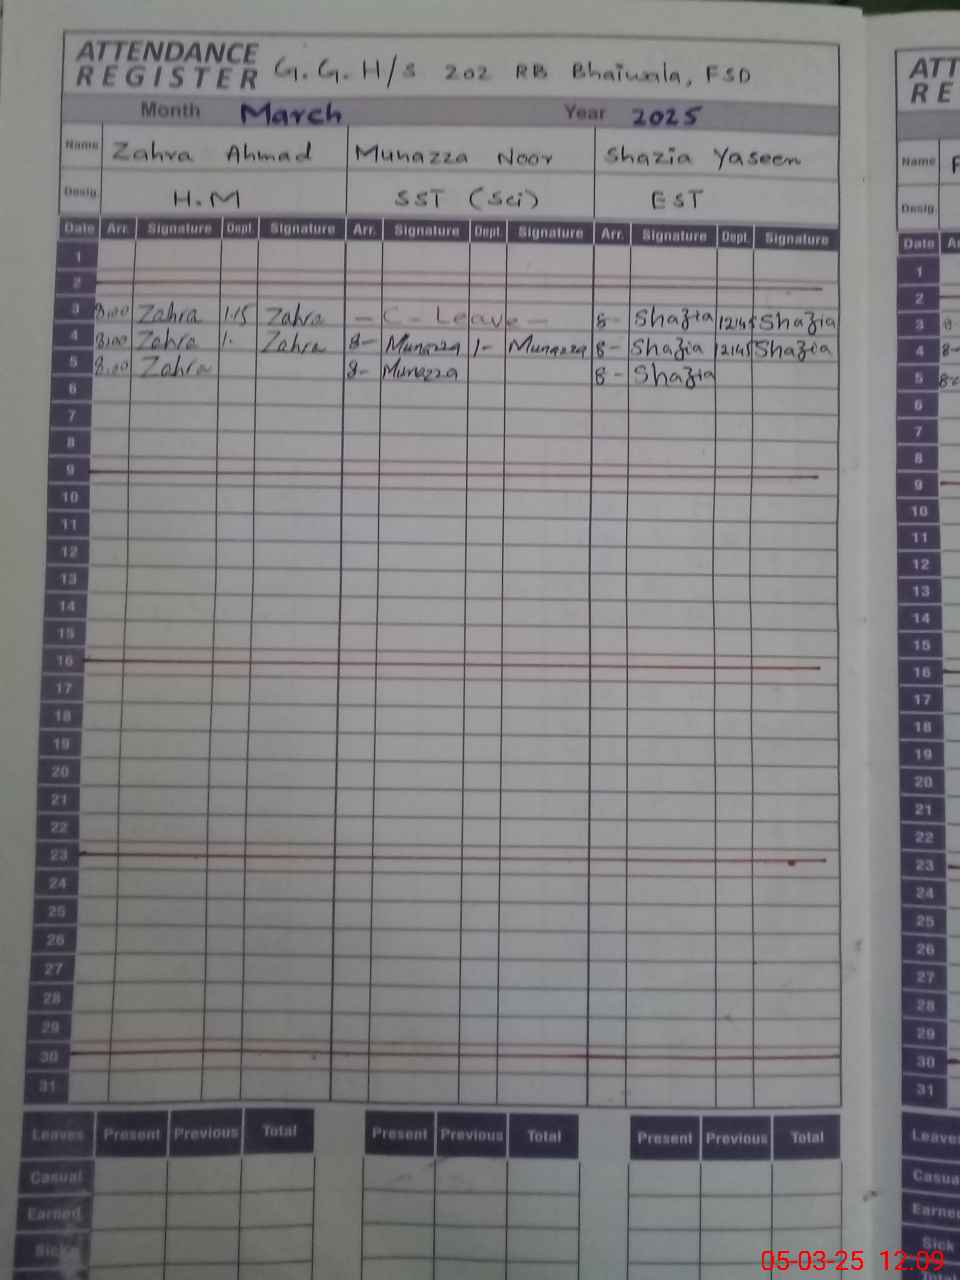 ATTENDANCE REGISTER G.G.H/S 202 RB Bhaiwala, FSD
Month March Year 2025
Name Zahra Ahmad Munazza Noor Shazia Yaseen
Desig. H.M SST (Sci) EST
Date Arr. Signature Dept. Signature Arr. Signature Dept. Signature Arr. Signature Dept. Signature
1
2
3 8:00 Zahra 1:15 Zahra - C - Leave - 8- Shazia 12:45 Shazia
4 8:00 Zahra 1- Zahra 8- Munazza 1- Munazza 8- Shazia 12:45 Shazia
5 8:00 Zahra 8- Munazza 8- Shazia
6
7
8
9
10
11
12
13
14
15
16
17
18
19
20
21
22
23
24
25
26
27
28
29
30
31
Leaves Present Previous Total Present Previous Total Present Previous Total
Casual
Earned
Sick
ATT
RE
Name
Desig.
Date
1
2
3
4 8-
5
6
7
8
9
10
11
12
13
14
15
16
17
18
19
20
21
22
23
24
25
26
27
28
29
30
31
Leave
Casua
Earne
Sick
05-03-25 12:09